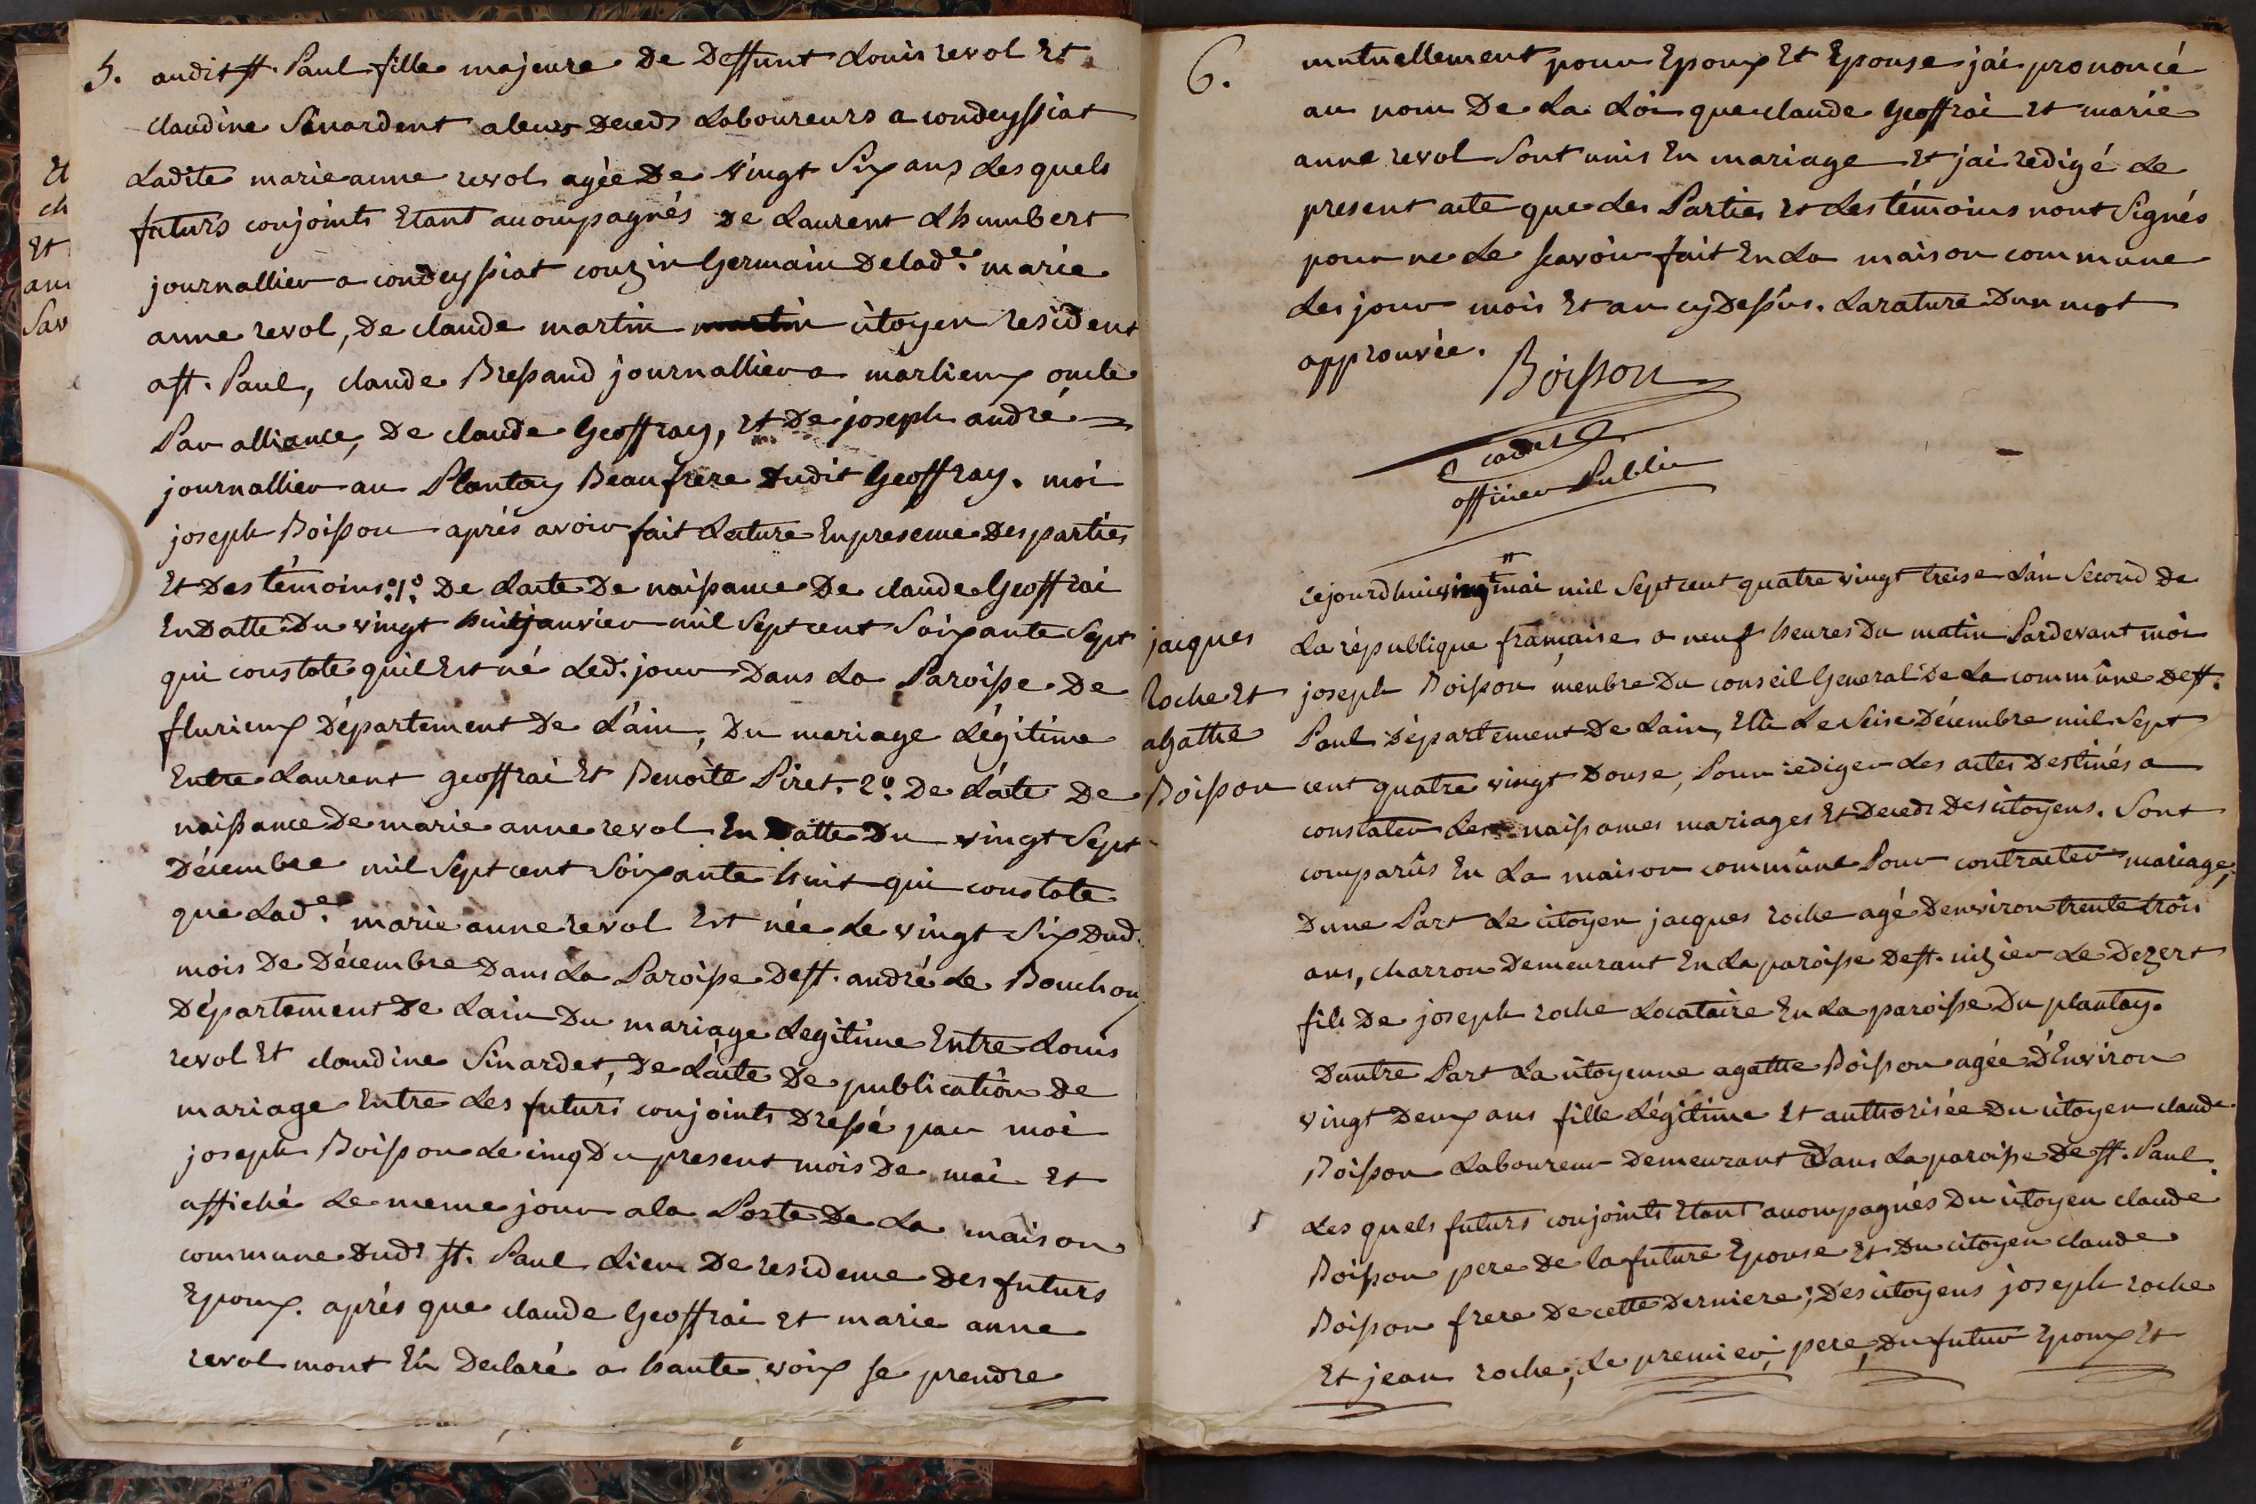 5.
audit st. Paul fille majeure de deffunt Louis revol Et
claudine Sinardent a leurs deceds Laboureurs a condeyssiat
Ladite marie anne revol agée de vingt Six ans, Lesquels
futurs conjoints Etant acompagnés de Laurent Lhumbert
journallier a condeyssiat couzin Germain de lad.e marie
anne revol, De claude martin martin citoyen resident
a st. Paul, claude Bressand journallier a marlieux oncle
Par alliance, De claude Geoffray, et De joseph andré
journallier au Plantay Beaufrere dudit Geoffray. moi
joseph Boisson aprés avoir fait Lecture En presence Des parties
Et Des témoins: 1.o De Lacte De naissance De claude Geoffrai
En Datte Du vingt huit janvier mil Sept cent Soixante Sept
qui constate quil Est né Led. jour Dans La Paroisse De
flurieux Département De L'ain, Du mariage Légitime
Entre Laurent geoffrai Et Benoite Piret. 2.o De L'acte De
naissance De marie anne revol En Datte Du vingt Sept
Décembre mil Sept cent Soixante huit qui constate
que Lad.e marie anne revol Est née Le vingt Six Dud.
mois De Décembre Dans La Paroisse De st. andré Le Bouchou
Département De Lain Du mariage Legitime Entre Louis
revol Et claudine Sinardet, De L'acte De publication De
mariage Entre Les futurs conjoints Dressé par moi
joseph Boisson Le cinq Du present mois De mai Et
affiché Le meme jour a la Porte De La maison
commune Dudt st. Paul Lieu De residence Des futurs
Epoux. aprés que claude Geoffrai Et marie anne
revol mont Eu Declaré a haute voix se prendre
Et
ch
Et
ann
Sav
6.
mutuellement pour Epoux Et Epouse jai prononcé
au nom De La Loi que claude Geoffrai Et marie
anne revol Sont unis En mariage Et jai redigé Le
present acte que Les Parties Et Les témoins nont Signés
pour ne Le scavoir fait En La maison commune
Les jour mois Et an cy Dessus. La rature Dun mot
approuvée.
Boisson
officier Public
cejourdhui vingt mai mil Sept cent quatre vingt treise Lán Second De
La république francaise a neuf heures Du matin Pardevant moi
joseph Boisson menbre Du conseil General De La commune De st.
Paul Département De Lain, Elu Le Seise Décembre mil Sept
cent quatre vingt Douse, Pour rediger Les actes Destinés a
constater Les naissances mariages Et Deceds Des citoyens. Sont
comparûs En La maison commune Pour contracter mariage,
Dune Part Le citoyen jacques roche agé Denviron trente trois
ans, charron Demeurant En La paroisse De st. nizier Le Dezert
fils De joseph roche Locataire En La paroisse Du plantay.
Dautre Part La citoyenne agathe Boisson agée D'Environ
vingt Deux ans fille Légitime Et authorisée Du citoyen claude
Boisson Laboureur Demeurant Dans La paroisse De st. Paul.
Les quels futurs conjoints Etant acompagnés Du citoyen claude
Boisson pere De la future Epouse Et Du citoyen claude
Boisson frere De cette Derniere; Des citoyens joseph roche
Et jean roche, Le premier, pere, Du futur Epoux Et
jacques
Roche Et
agathe
Boisson